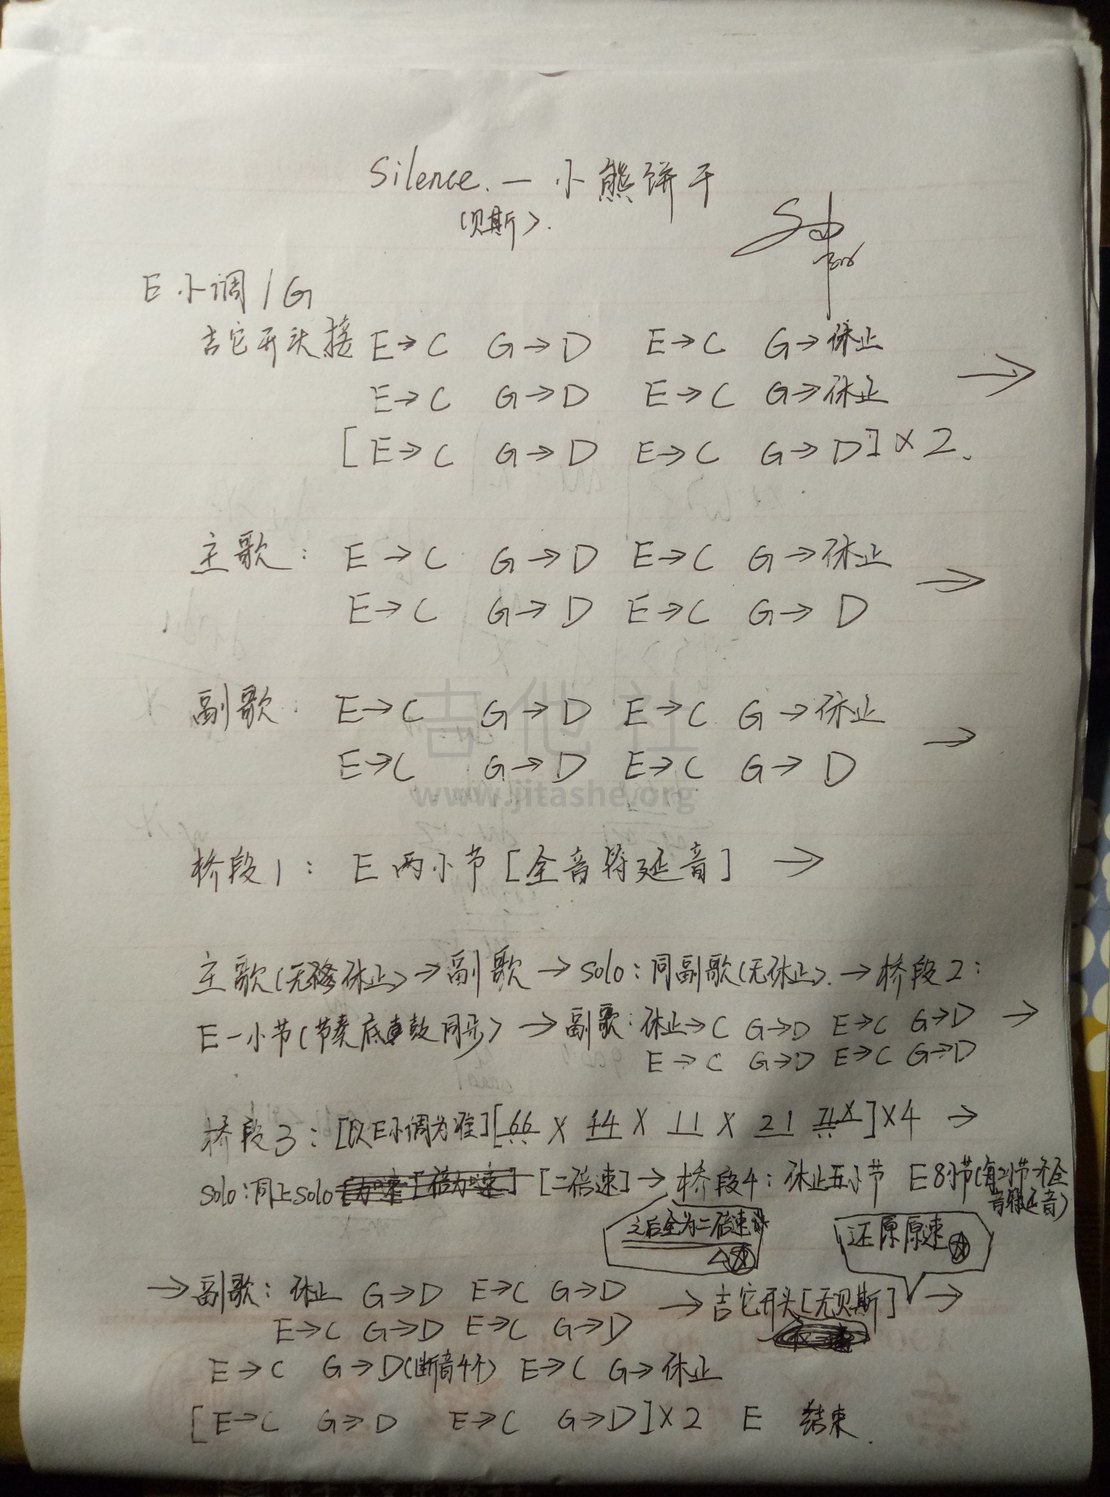 Silence. — 小熊饼干
(贝斯).
E 小调 / G
吉它开头接 E→C G→D E→C G→休止
E→C G→D E→C G→休止 →
[E→C G→D E→C G→D] × 2.
主歌: E→C G→D E→C G→休止
E→C G→D E→C G→D →
副歌: E→C G→D E→C G→休止
E→C G→D E→C G→D →
吉他社
www.jitashe.org
桥段1: E 两小节 [全音符延音] →
主歌(无 休止)→副歌→solo:同副歌(无休止).→桥段2:
E一小节(节奏底鼓同步)→副歌:休止→C G→D E→C G→D →
E→C G→D E→C G→D
桥段3:[以E小调为准][66 X 44 X 11 X 21 71X]×4 →
solo:同上solo [二倍速]→桥段4:休止五小节 E8小节(有2小节 全音符延音)
之后全为二倍速
还原原速
→副歌: 休止 G→D E→C G→D →吉它开头[无贝斯] →
E→C G→D E→C G→D
E→C G→D(断音4个) E→C G→休止
[E→C G→D E→C G→D]×2 E 结束.